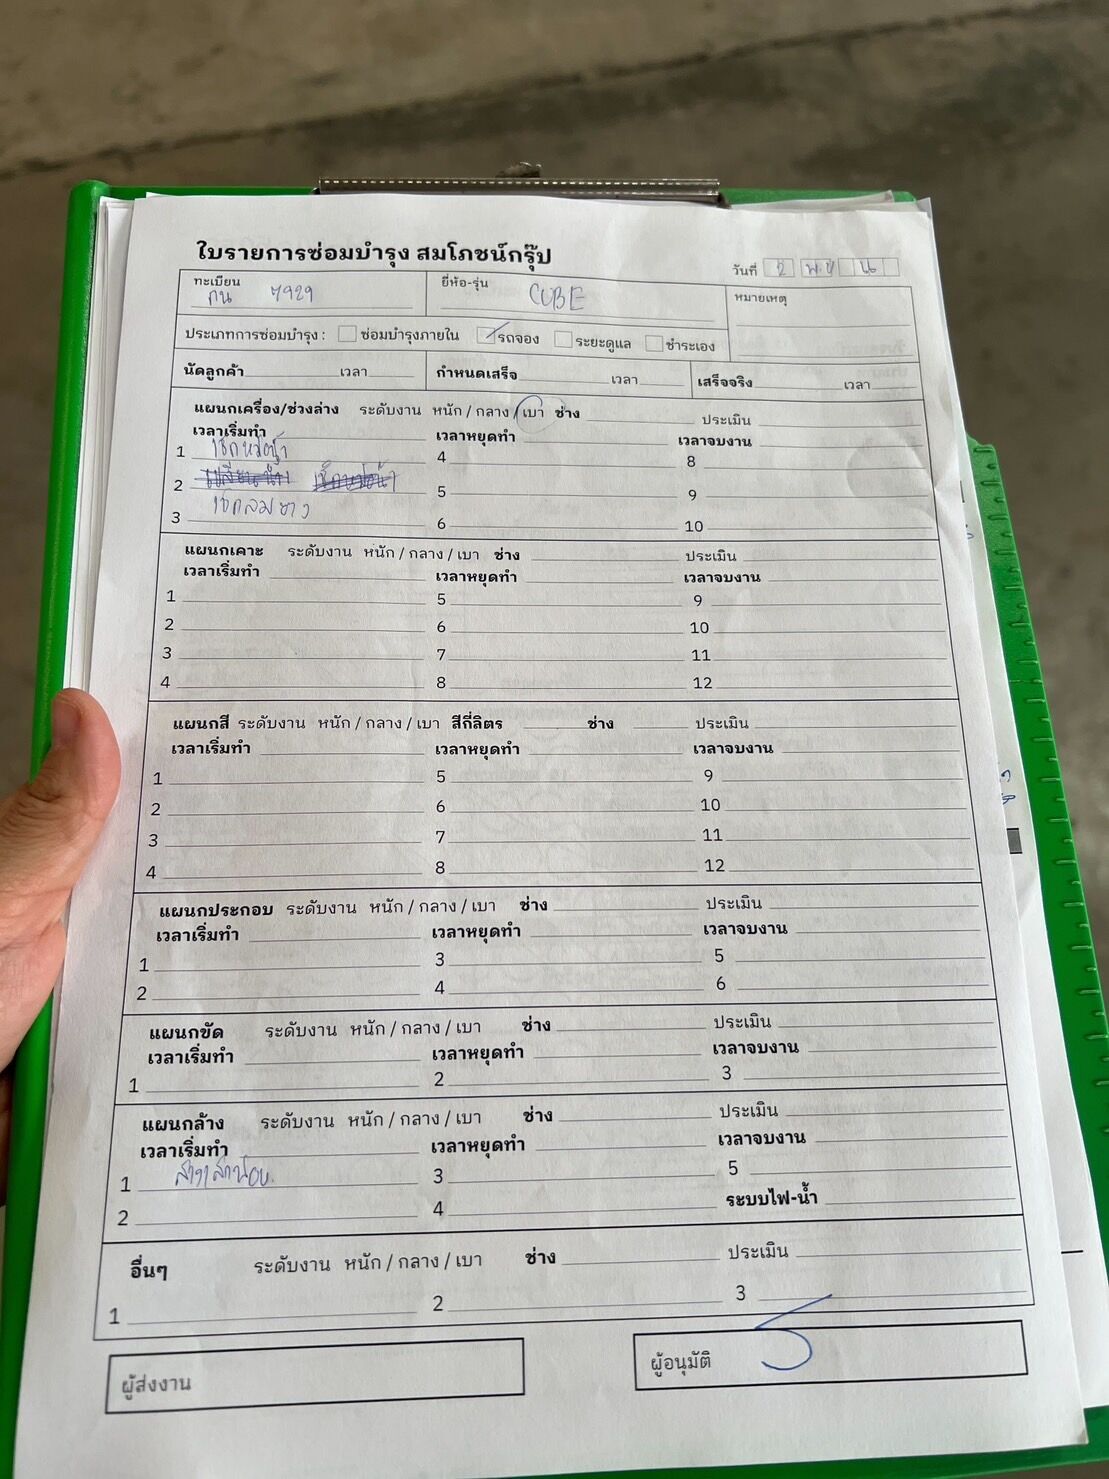 ใบรายการซ่อมบำรุง สมโภชน์กรุ๊ป
วันที่ 2 พ.ย
ทะเบียน กน 7929 ยี่ห้อ-รุ่น CUBE หมายเหตุ
ประเภทการซ่อมบำรุง : ซ่อมบำรุงภายใน รถจอง ระยะดูแล ชำระเอง
นัดลูกค้า เวลา กำหนดเสร็จ เวลา เสร็จจริง เวลา
แผนกเครื่อง/ช่วงล่าง ระดับงาน หนัก / กลาง / เบา ช่าง ประเมิน
เวลาเริ่มทำ เวลาหยุดทำ เวลาจบงาน
1 เช็กหม้อน้ำ 4 8
2 5 9
3 เช็กลมยาง 6 10
แผนกเคาะ ระดับงาน หนัก / กลาง / เบา ช่าง ประเมิน
เวลาเริ่มทำ เวลาหยุดทำ เวลาจบงาน
1 5 9
2 6 10
3 7 11
4 8 12
แผนกสี ระดับงาน หนัก / กลาง / เบา สีกี่ลิตร ช่าง ประเมิน
เวลาเริ่มทำ เวลาหยุดทำ เวลาจบงาน
1 5 9
2 6 10
3 7 11
4 8 12
แผนกประกอบ ระดับงาน หนัก / กลาง / เบา ช่าง ประเมิน
เวลาเริ่มทำ เวลาหยุดทำ เวลาจบงาน
1 3 5
2 4 6
แผนกขัด ระดับงาน หนัก / กลาง / เบา ช่าง ประเมิน
เวลาเริ่มทำ เวลาหยุดทำ เวลาจบงาน
1 2 3
แผนกล้าง ระดับงาน หนัก / กลาง / เบา ช่าง ประเมิน
เวลาเริ่มทำ เวลาหยุดทำ เวลาจบงาน
1 3 5
2 4 ระบบไฟ-น้ำ
อื่นๆ ระดับงาน หนัก / กลาง / เบา ช่าง ประเมิน
1 2 3
ผู้ส่งงาน ผู้อนุมัติ